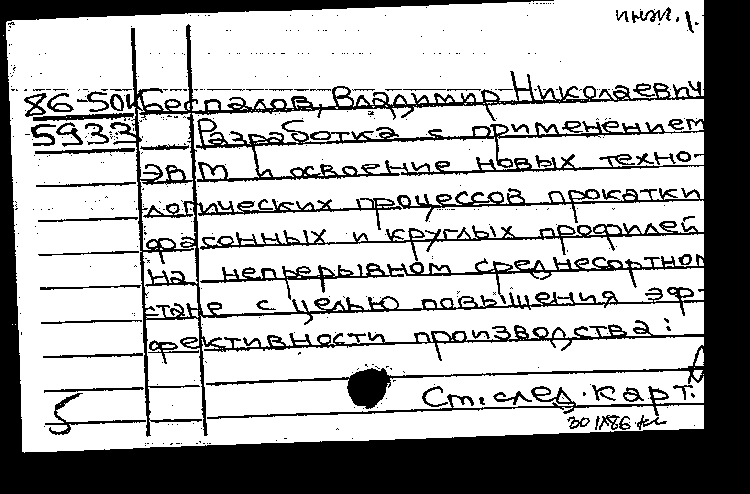 инж. 1.
86-50к Беспалов, Владимир Николаевич
5933 Разработка с применением
ЭВМ и освоение новых техно-
логических процессов прокатки
фасонных и круглых профилей
на непрерывном среднесортном
стане с целью повышения эф-
фективности производства:
Ст. след. карт.
5
30 IX86